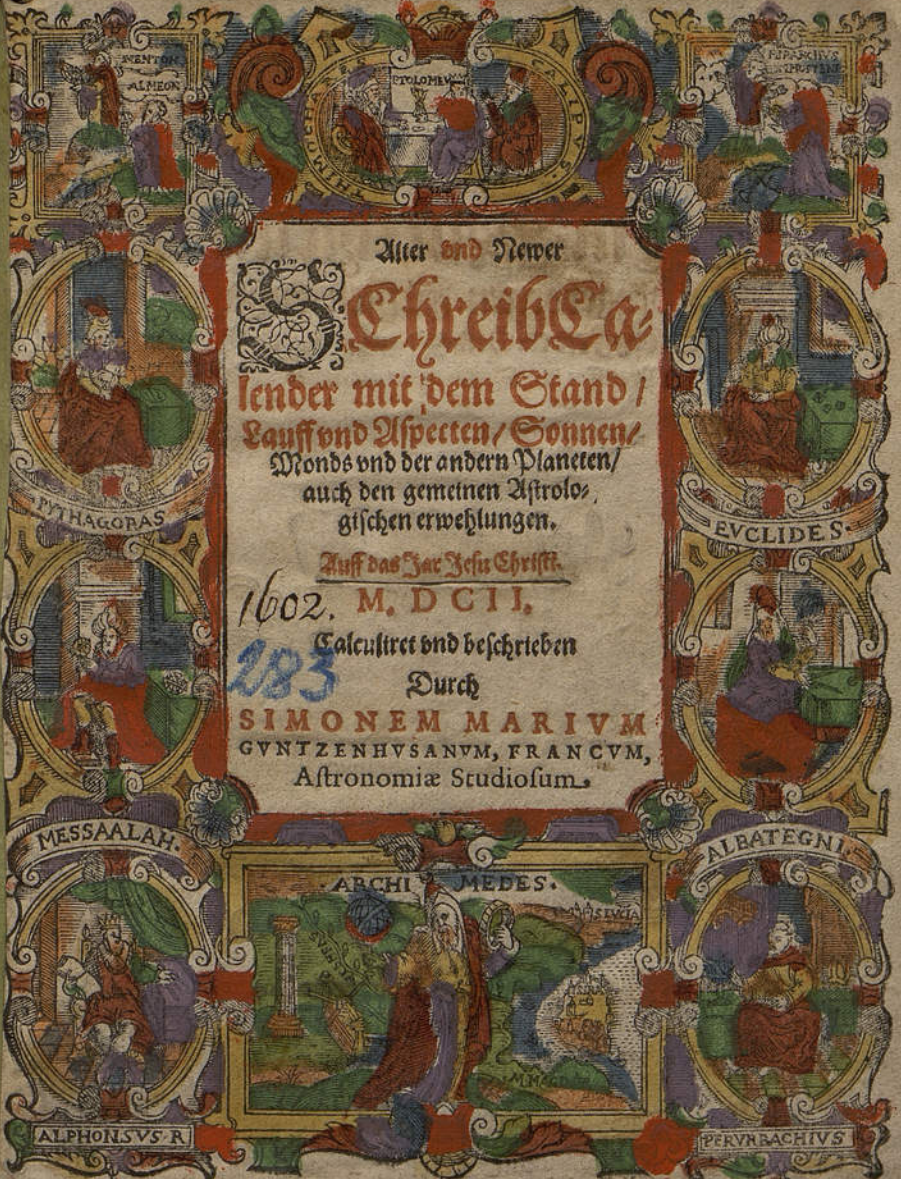 MENTON
ALMEON
TIMOCHA
PTOLOMEVS
CALIPPVS
HIPARCHVS
Alter vnd Newer
SChreibCa-
lender mit dem Stand /
Lauff vnd Aspecten / Sonnen /
Monds vnd der andern Planeten /
auch den gemeinen Astrolo-
gischen erwehlungen.
Auff das Jar Jesu Christi.
1602. M. DCII.
Calculiret vnd beschrieben
283
Durch
SIMONEM MARIVM
GVNTZENHVSANVM, FRANCVM,
Astronomiæ Studiosum.
PYTHAGORAS
EVCLIDES.
MESSAALAH.
ALBATEGNI.
ARCHIMEDES.
ALPHONSVS R
PERVRBACHIVS